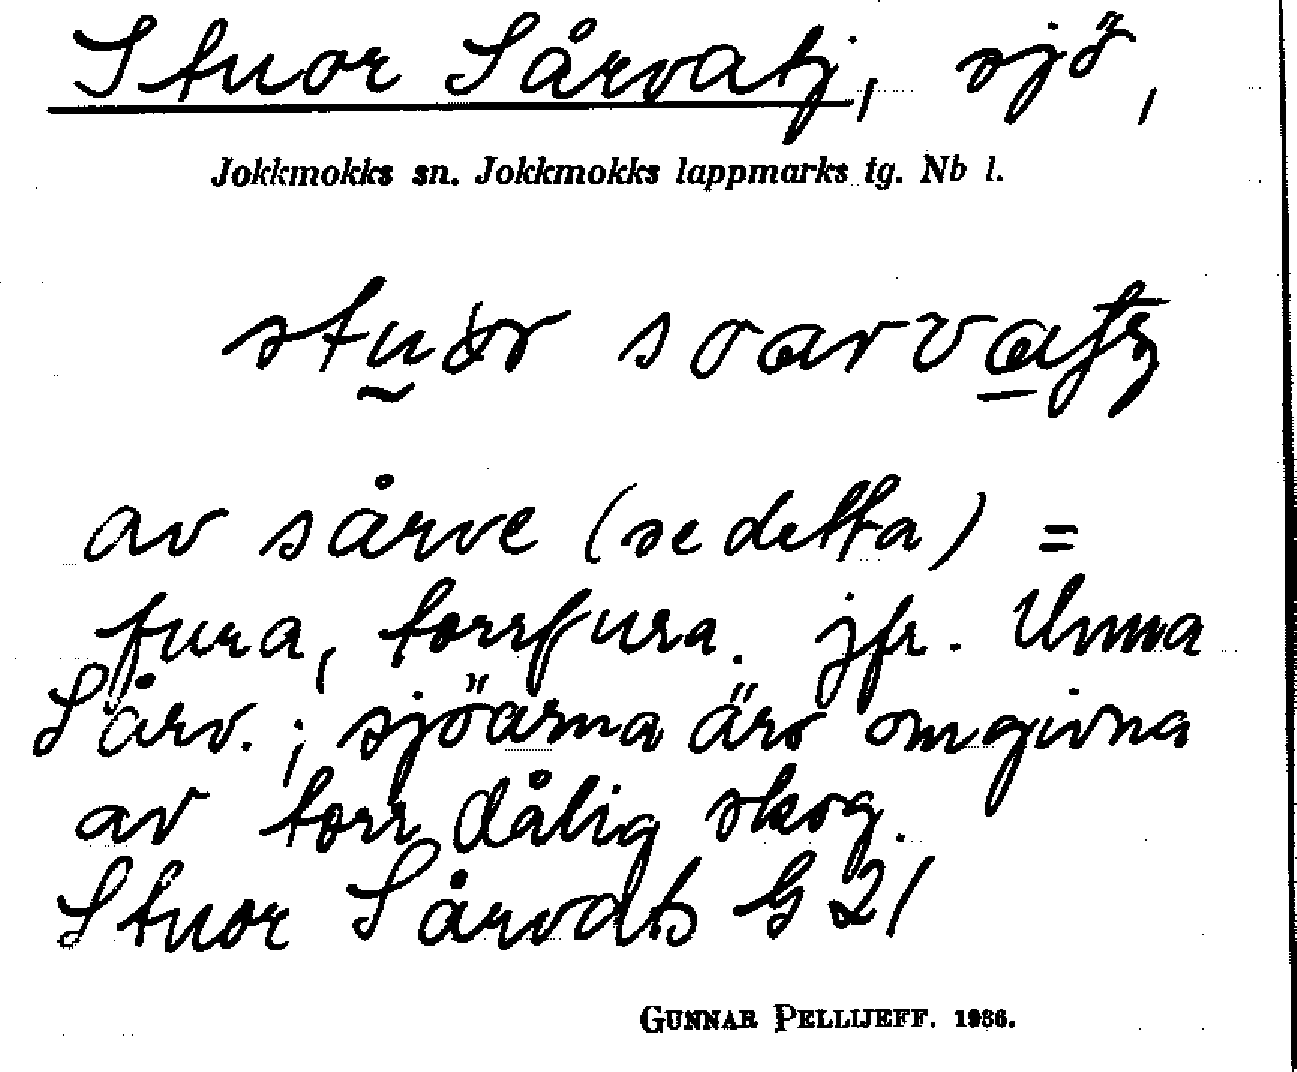 Stuor Sårvatj, sjö,
Jokkmokks sn. Jokkmokks lappmarks tg. Nb l.
av sårve (se detta) =
fura, torrfura. jfr. Unna
Sårv. ; sjöarna äro omgivna
av torr dålig skog.
Stuor Sårvats G 21
GUNNAR PELLIJEFF. 1936.